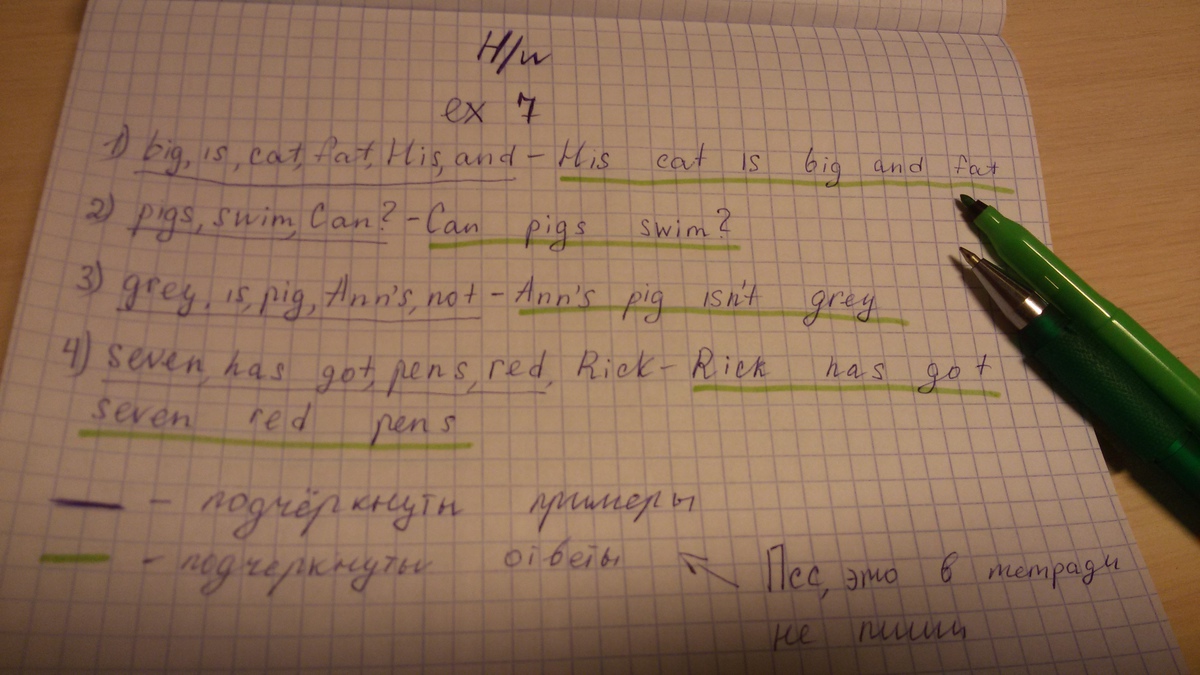 H/w
ex 7
1) big, is, cat, fat, His, and – His cat is big and fat
2) pigs, swim, Can? – Can pigs swim?
3) grey, is, pig, Ann's, not – Ann's pig isn't grey
4) seven, has got, pens, red, Rick – Rick has got
seven red pens
– подчёркнуты примеры
– подчеркнуты ответы
Псс, это в тетради
не пиши